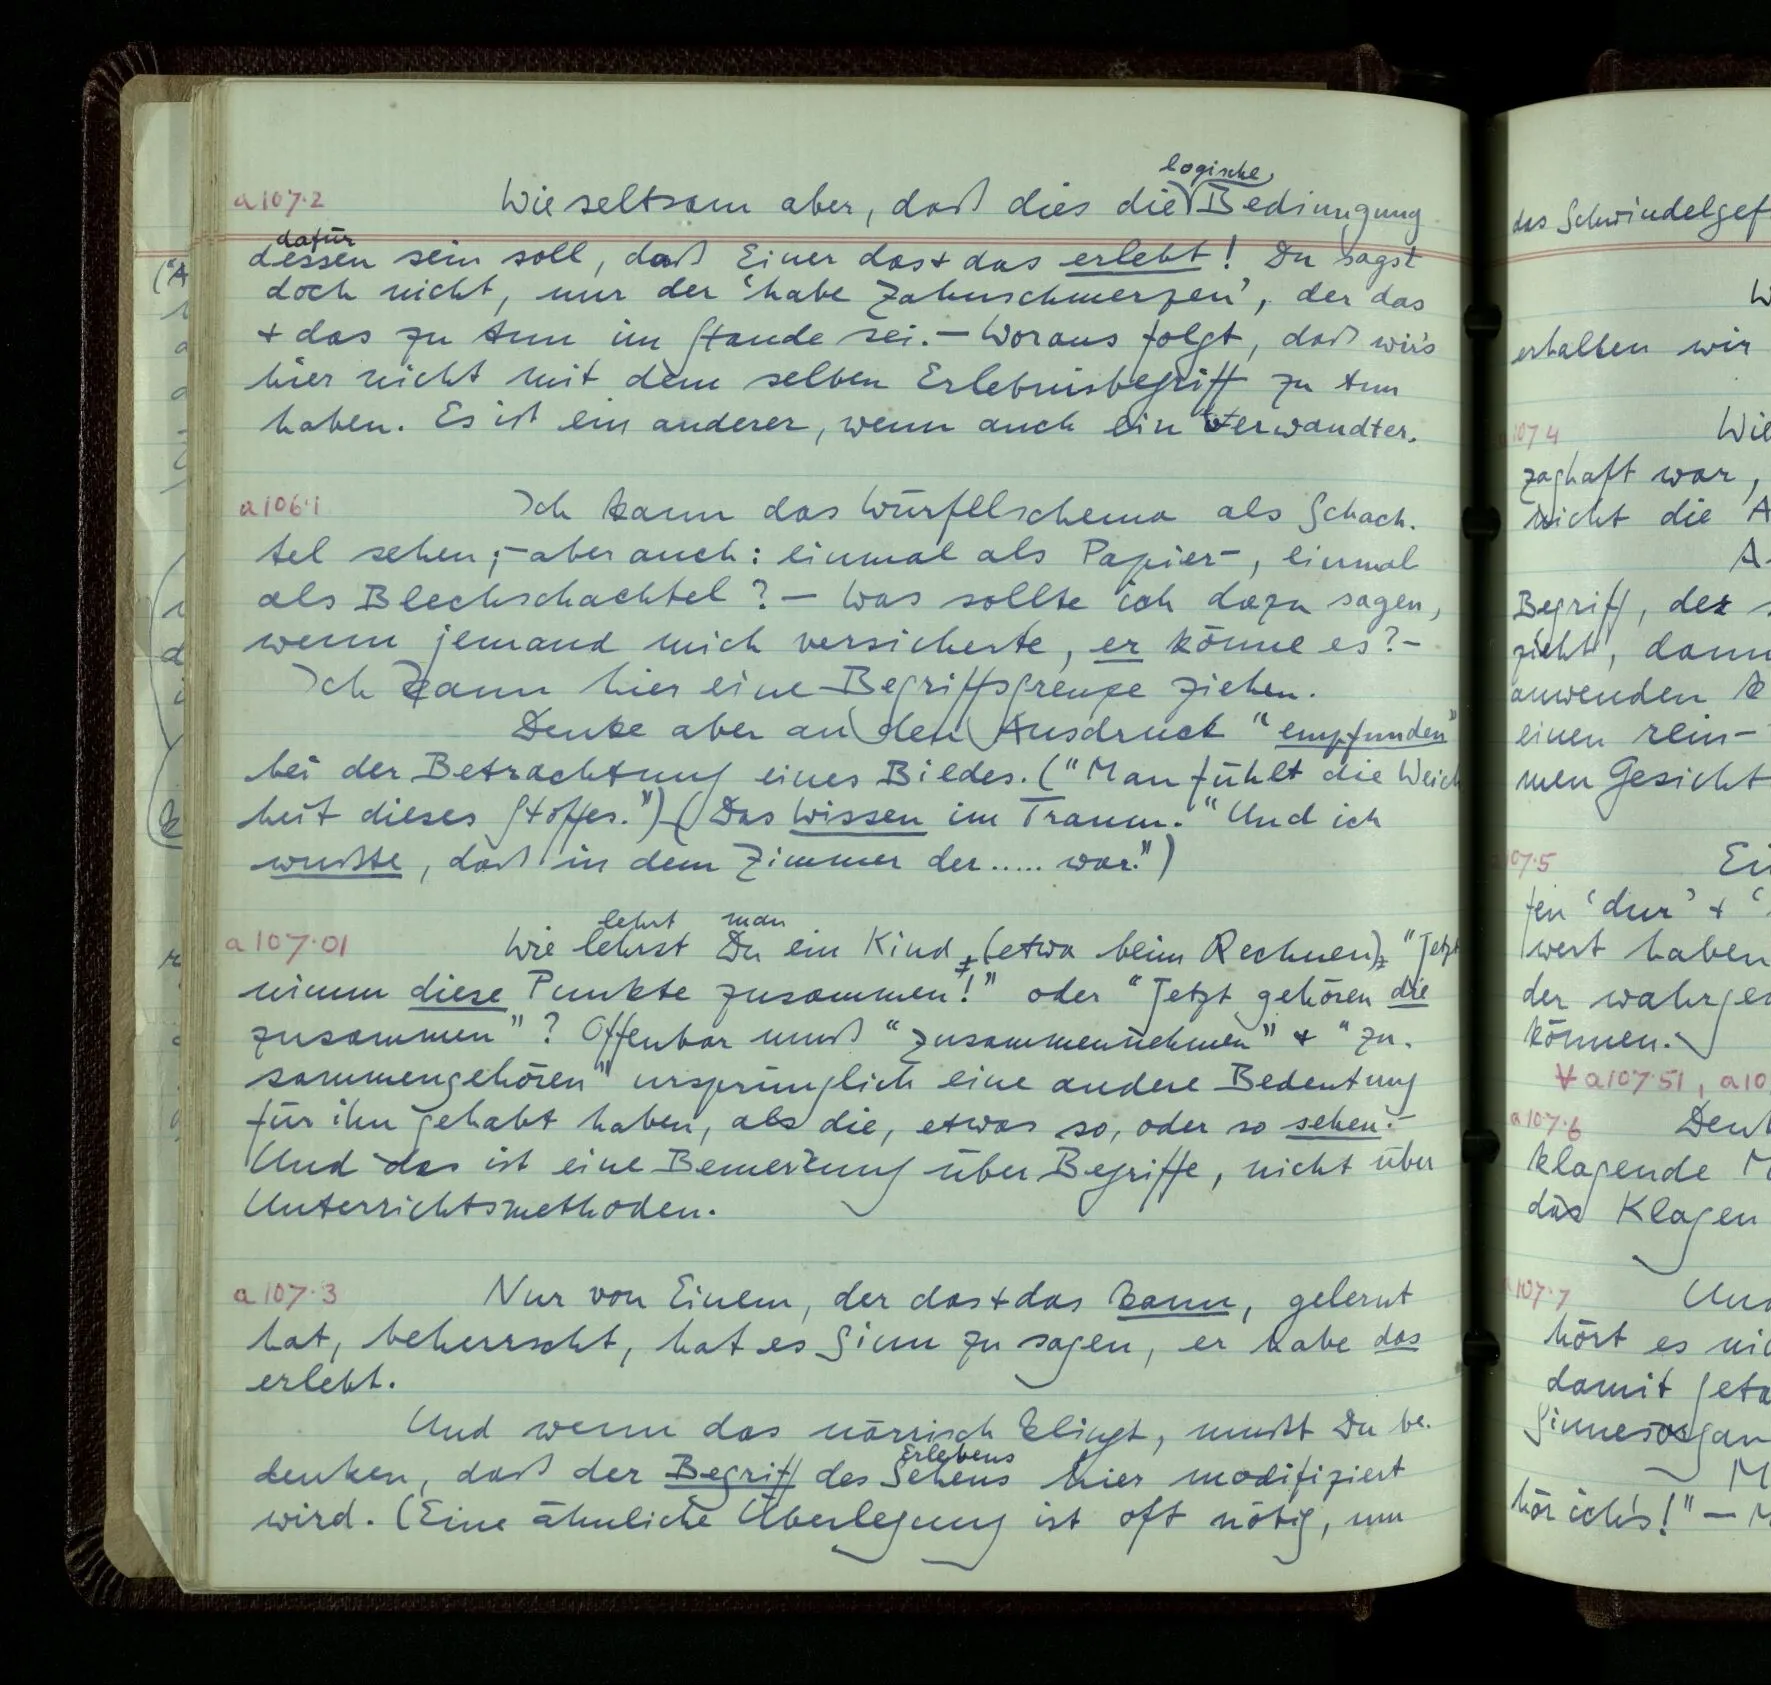 logische
a 107·2 Wie seltsam aber, daß dies die Bedingung
dafür
dessen sein soll, daß Einer das + das erlebt! Du sagst
doch nicht, nur der ‘habe Zahnschmerzen’, der das
+ das zu tun im Stande sei. — Woraus folgt, daß wir's
hier nicht mit dem selben Erlebnisbegriff zu tun
haben. Es ist ein anderer, wenn auch ein verwandter.
a 106·1 Ich kann das Würfelschema als Schach-
tel sehen; – aber auch: einmal als Papier–, einmal
als Blechschachtel? — Was sollte ich dazu sagen,
wenn jemand mich versicherte, er könne es? –
Ich kann hier eine Begriffsgrenze ziehen.
Denke aber an den Ausdruck “empfunden”
bei der Betrachtung eines Bildes. (“Man fühlt die Weich
heit dieses Stoffes.”) (Das Wissen im Traum. “Und ich
wußte, daß in dem Zimmer der ..... war.”)
lehrt man
a 107·01 Wie lehrst Du ein Kind (etwa beim Rechnen) “Jetzt
nimm diese Punkte zusammen!” oder “Jetzt gehören die
zusammen”? Offenbar muß “zusammennehmen” + “zu-
sammengehören” ursprünglich eine andere Bedeutung
für ihn gehabt haben, als die, etwas so, oder so sehen. –
Und das ist eine Bemerkung über Begriffe, nicht über
Unterrichtsmethoden.
a 107·3 Nur von Einem, der das + das kann, gelernt
hat, beherrscht, hat es Sinn zu sagen, er habe das
erlebt.
Und wenn das närrisch klingt, mußt Du be-
Erlebens
denken, daß der Begriff des Sehens hier modifiziert
wird. (Eine ähnliche Überlegung ist oft nötig, um
das Schwindelgef
W
erhalten wir
107·4 Wie
zaghaft war,
nicht die A
A
Begriff, der
zieht, dann
anwenden k
einen rein–
men Gesicht
107·5 Ei
fen ‘dur’ + ‘
wert haben
der wahrge
können.
∀ a 107·51, a 10
a 107·6 Denk
klagende M
das Klagen
107·7 Und
hört es nic
damit geta
Sinnesorgan
M
hör ich's!” — M